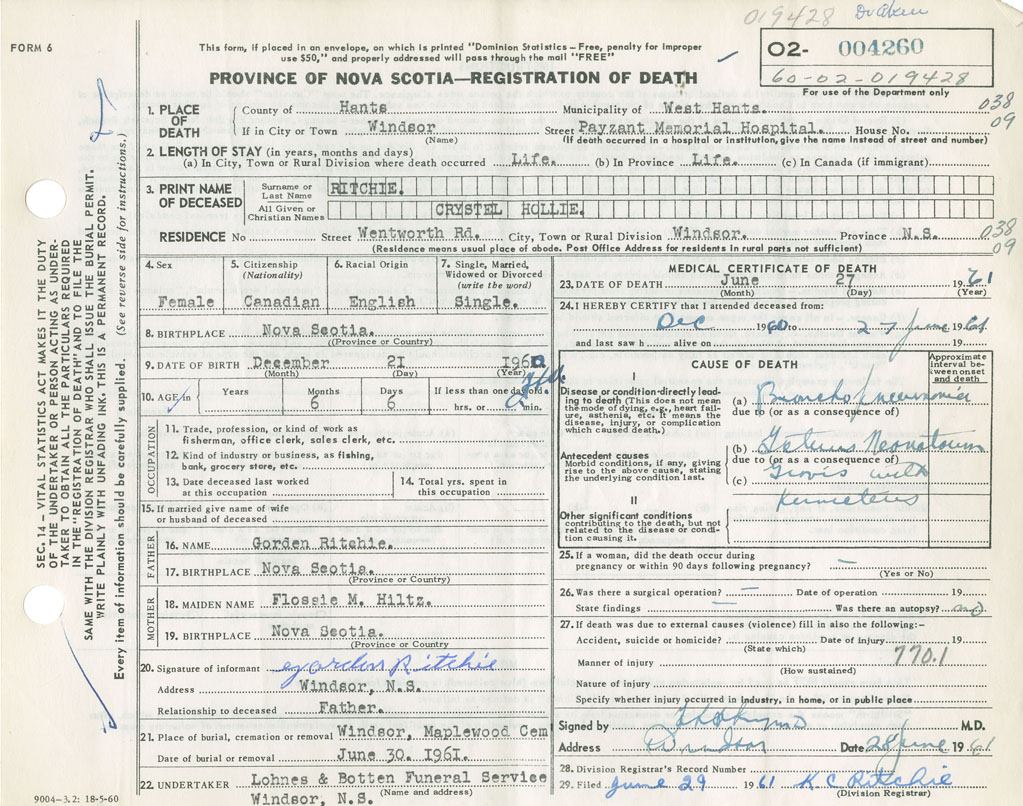 019428
FORM 6
This form, if placed in an envelope, on which is printed "Dominion Statistics – Free, penalty for improper
use $50," and properly addressed will pass through the mail "FREE"
O2- 004260
60-02-019428
For use of the Department only
PROVINCE OF NOVA SCOTIA—REGISTRATION OF DEATH
038
09
1. PLACE OF DEATH
County of Hants
Municipality of West Hants.
If in City or Town Windsor
(Name)
Street Payzant Memorial Hospital. House No.
(If death occurred in a hospital or institution, give the name instead of street and number)
2. LENGTH OF STAY (in years, months and days)
(a) In City, Town or Rural Division where death occurred Life. (b) In Province Life. (c) In Canada (if immigrant)
3. PRINT NAME OF DECEASED
Surname or Last Name RITCHIE.
All Given or Christian Names CRYSTEL HOLLIE.
RESIDENCE No Street Wentworth Rd. City, Town or Rural Division Windsor. Province N.S.
038
09
(Residence means usual place of abode. Post Office Address for residents in rural parts not sufficient)
4. Sex
Female
5. Citizenship
(Nationality)
Canadian
6. Racial Origin
English
7. Single, Married, Widowed or Divorced
(write the word)
Single.
8. BIRTHPLACE Nova Scotia.
(Province or Country)
9. DATE OF BIRTH December 21 1960
(Month) (Day) (Year)
10. AGE in
Years
Months
6
Days
6
If less than one day old
hrs. or min.
OCCUPATION
11. Trade, profession, or kind of work as
fisherman, office clerk, sales clerk, etc.
12. Kind of industry or business, as fishing,
bank, grocery store, etc.
13. Date deceased last worked
at this occupation
14. Total yrs. spent in
this occupation
15. If married give name of wife
or husband of deceased
FATHER
16. NAME Gorden Ritchie.
17. BIRTHPLACE Nova Scotia.
(Province or Country)
MOTHER
18. MAIDEN NAME Flossie M. Hiltz.
19. BIRTHPLACE Nova Scotia.
(Province or Country
20. Signature of informant Gorden Ritchie
Address Windsor, N.S.
Relationship to deceased Father.
21. Place of burial, cremation or removal Windsor, Maplewood Cem
Date of burial or removal June 30. 1961.
22. UNDERTAKER Lohnes & Botten Funeral Service
(Name and address)
Windsor, N.S.
MEDICAL CERTIFICATE OF DEATH
23. DATE OF DEATH June 27 1961
(Month) (Day) (Year)
24. I HEREBY CERTIFY that I attended deceased from:
Dec 1960 to 27 June 1961
and last saw h alive on 19
CAUSE OF DEATH
Approximate interval between onset and death
I
Disease or condition directly leading to death (This does not mean the mode of dying, e.g., heart failure, asthenia, etc. It means the disease, injury, or complication which caused death.)
(a) Broncho pneumonia
due to (or as a consequence of)
Antecedent causes
Morbid conditions, if any, giving rise to the above cause, stating the underlying condition last.
(b) Icterus Neonatorum
due to (or as a consequence of)
(c) Gravis with
Kernicterus
II
Other significant conditions
contributing to the death, but not related to the disease or condition causing it.
25. If a woman, did the death occur during
pregnancy or within 90 days following pregnancy? –
(Yes or No)
26. Was there a surgical operation? – Date of operation 19
State findings – Was there an autopsy? no
27. If death was due to external causes (violence) fill in also the following:–
Accident, suicide or homicide? Date of injury 19
(State which)
770.1
Manner of injury
(How sustained)
Nature of injury
Specify whether injury occurred in industry, in home, or in public place
Signed by M.D.
Address Windsor Date 28 June 1961
28. Division Registrar's Record Number
29. Filed June 29 1961 K C Ritchie
(Division Registrar)
SEC. 14 – VITAL STATISTICS ACT MAKES IT THE DUTY
OF THE UNDERTAKER OR PERSON ACTING AS UNDER-
TAKER TO OBTAIN ALL THE PARTICULARS REQUIRED
IN THE "REGISTRATION OF DEATH" AND TO FILE THE
SAME WITH THE DIVISION REGISTRAR WHO SHALL ISSUE THE BURIAL PERMIT.
WRITE PLAINLY WITH UNFADING INK. THIS IS A PERMANENT RECORD.
Every item of information should be carefully supplied. (See reverse side for instructions.)
9004-3.2: 18-5-60